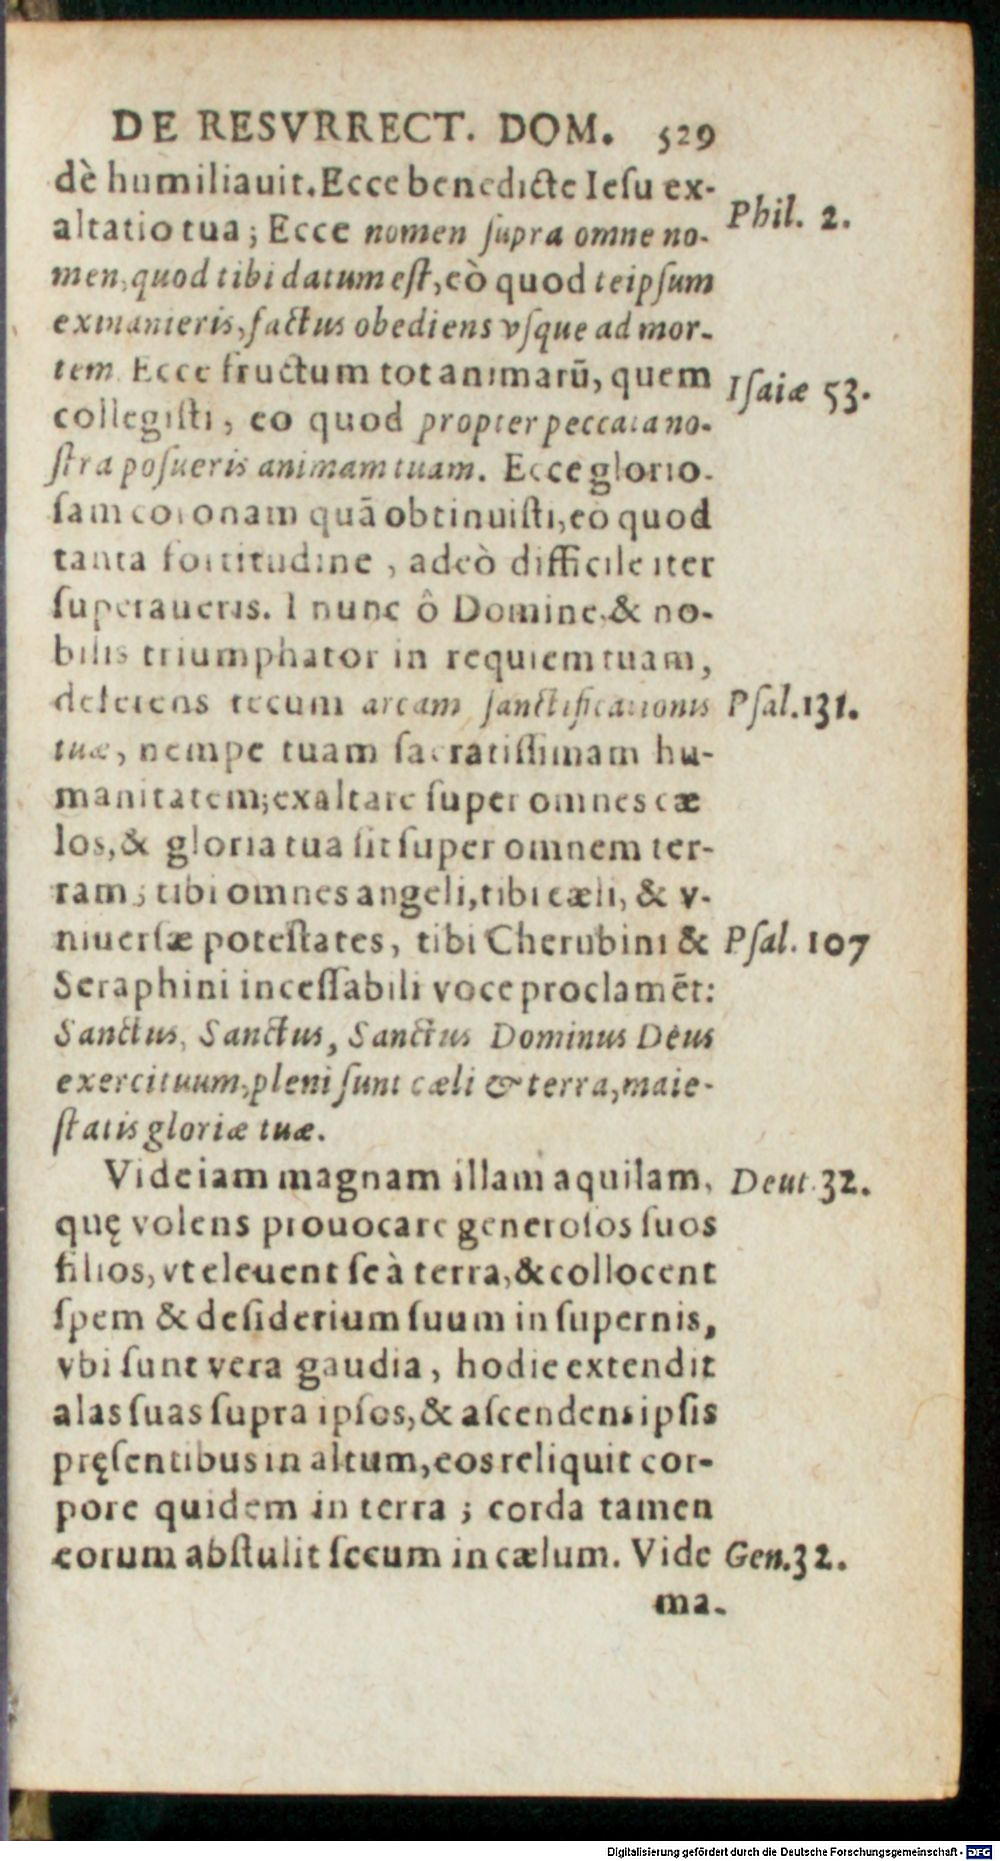 DE RESVRRECT. DOM. 529
dè humiliauit. Ecce benedicte Iesu ex-
altatio tua; Ecce nomen supra omne no- Phil. 2.
men, quod tibi datum est, eò quod teipsum
exinanieris, factus obediens vsque ad mor-
tem. Ecce fructum tot animarū, quem Isaiæ 53.
collegisti, eo quod propter peccata no-
stra posueris animam tuam. Ecce glorio-
sam coronam quā obtinuisti, eo quod
tanta fortitudine, adeò difficile iter
superaueris. I nunc ô Domine, & no-
bilis triumphator in requiem tuam,
deferens tecum arcam sanctificationis Psal. 131.
tuæ, nempe tuam sacratissimam hu-
manitatem; exaltare super omnes cæ
los, & gloria tua sit super omnem ter-
ram; tibi omnes angeli, tibi cæli, & v-
niuersæ potestates, tibi Cherubini & Psal. 107
Seraphini incessabili voce proclamēt:
Sanctus, Sanctus, Sanctus Dominus Deus
exercituum, pleni sunt cæli & terra, maie-
statis gloriæ tuæ.
Vide iam magnam illam aquilam, Deut. 32.
quę volens prouocare generosos suos
filios, vt eleuent se à terra, & collocent
spem & desiderium suum in supernis,
vbi sunt vera gaudia, hodie extendit
alas suas supra ipsos, & ascendens ipsis
pręsentibus in altum, eos reliquit cor-
pore quidem in terra; corda tamen
eorum abstulit secum in cælum. Vide Gen. 32.
ma-
Digitalisierung gefördert durch die Deutsche Forschungsgemeinschaft - DFG